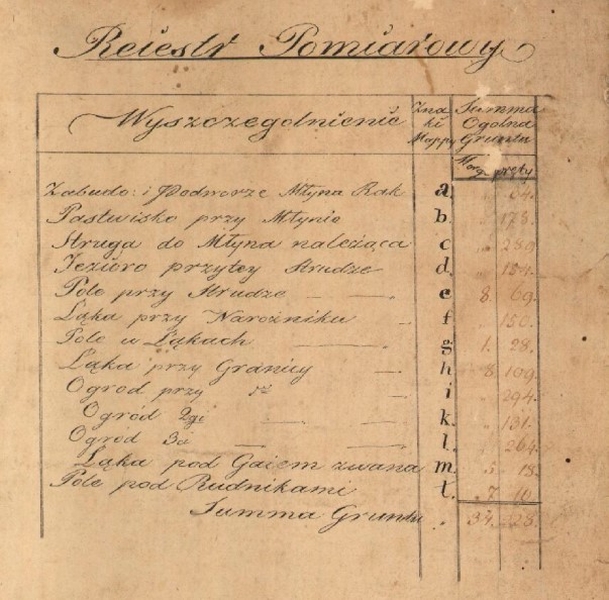 Reiestr Pomiarowy
Wyszczegolnienie
Zna
ki
Mappy
Summa
Ogolna
Gruntu
Morg. pręty
Zabudo: i Podworze Młyna Rak a. „ 64.
Pastwisko przy Młynie b. „ 173.
Struga do Młyna należąca c „ 289
Jezioro przytey Strudze d. „ 154.
Pole przy Strudze e 8. 69.
Łąka przy Narożniku f „ 150.
Pole w Łąkach g 1. 28.
Łąka przy Granicy h 8 109.
Ogrod przy i „ 294.
Ogród 2gi k. „ 131.
Ogrod 3ci l. „ 264.
Łąka pod Gaiem zwana m 5 18.
Pole pod Rudnikami ł. 7 10.
Summa Gruntu 34. 28.